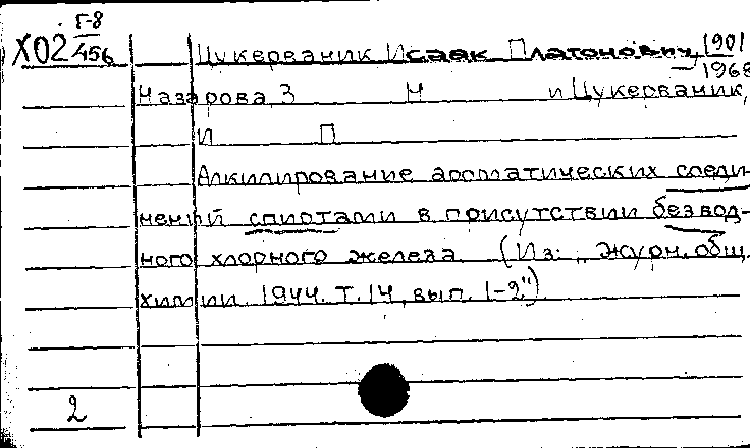 Б-8
Х02 456 Цукерваник Исаак Платонович, 1901
– 1968
Назарова, З Н и Цукерваник,
И П
Алкилирование ароматических соеди-
нений спиртами в присутствии безвод-
ного хлорного железа. (Из: "Журн. общ.
химии. 1944. Т. 14, вып. 1-2")
2